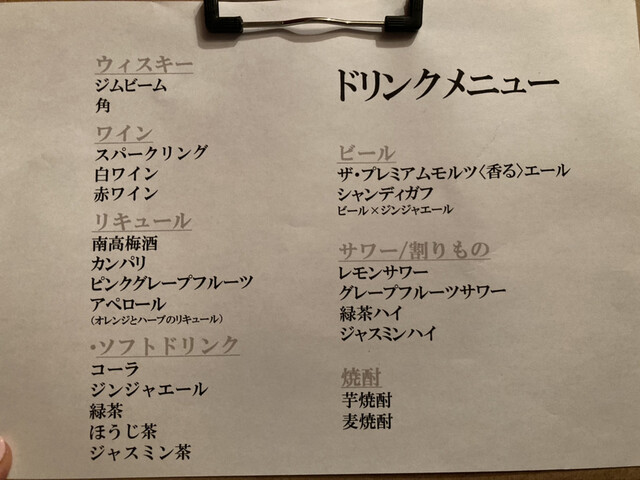 ドリンクメニュー
ウィスキー
ジムビーム
角
ワイン
スパークリング
白ワイン
赤ワイン
リキュール
南高梅酒
カンパリ
ピンクグレープフルーツ
アペロール
(オレンジとハーブのリキュール)
・ソフトドリンク
コーラ
ジンジャエール
緑茶
ほうじ茶
ジャスミン茶
ビール
ザ・プレミアムモルツ〈香る〉エール
シャンディガフ
ビール×ジンジャエール
サワー/割りもの
レモンサワー
グレープフルーツサワー
緑茶ハイ
ジャスミンハイ
焼酎
芋焼酎
麦焼酎